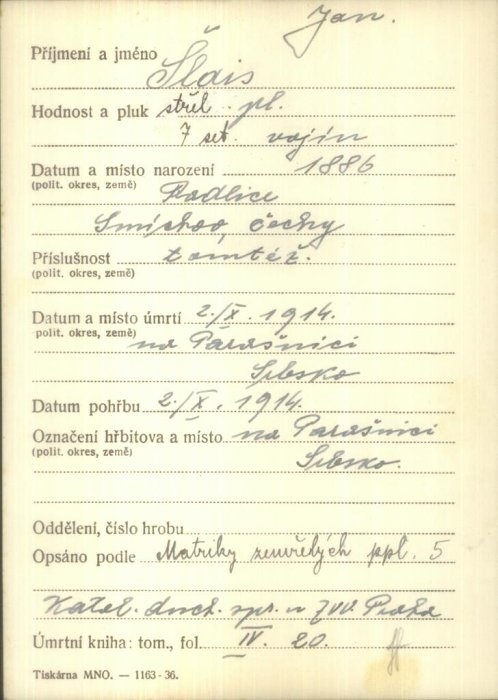 Jan.
Příjmení a jméno Šlais
Hodnost a pluk střel. pl.
7 set. vojín
Datum a místo narození 1886
(polit. okres, země) Radlice
Smíchov, Čechy
Příslušnost tamtéž.
(polit. okres, země)
Datum a místo úmrtí 2./X. 1914.
polit. okres, země) na Parašnici
Srbsko
Datum pohřbu 2./X. 1914.
Označení hřbitova a místo na Parašnici
(polit. okres, země) Srbsko.
Oddělení, číslo hrobu
Opsáno podle Matriky zemřelých ppl. 5
Katol. duch. spr. u ZVV. Praha
Úmrtní kniha: tom., fol. IV. 20.
Tiskárna MNO. — 1163-36.